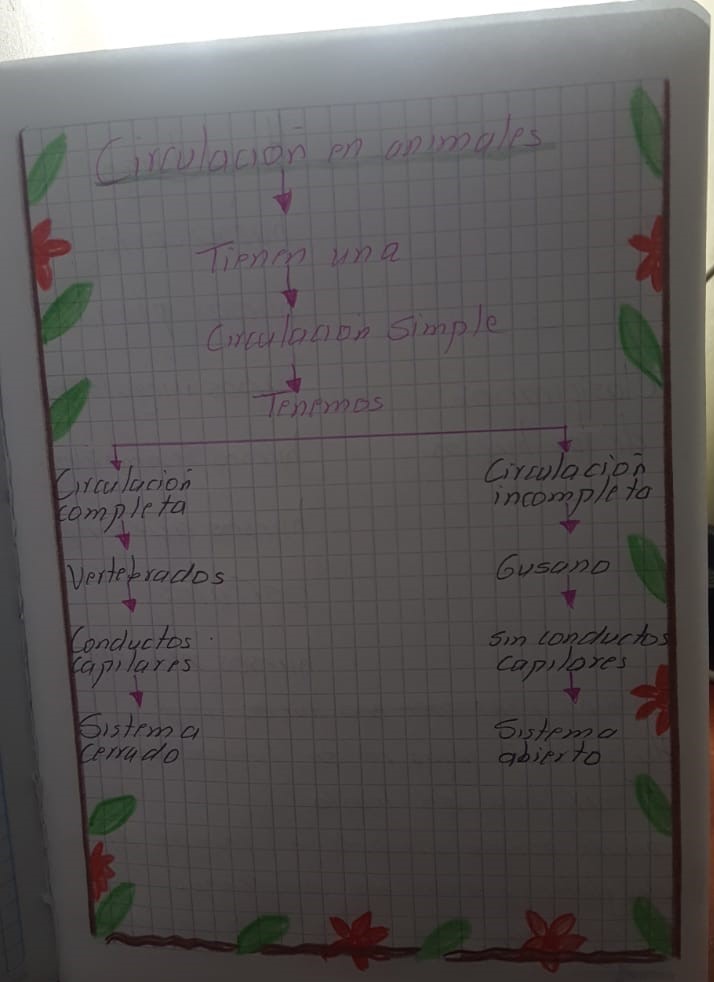 Circulación en animales
Tienen una
Circulación Simple
Tenemos
Circulación
completa
Vertebrados
Conductos
capilares
Sistema
cerrado
Circulación
incompleta
Gusano
sin conductos
capilares
Sistema
abierto